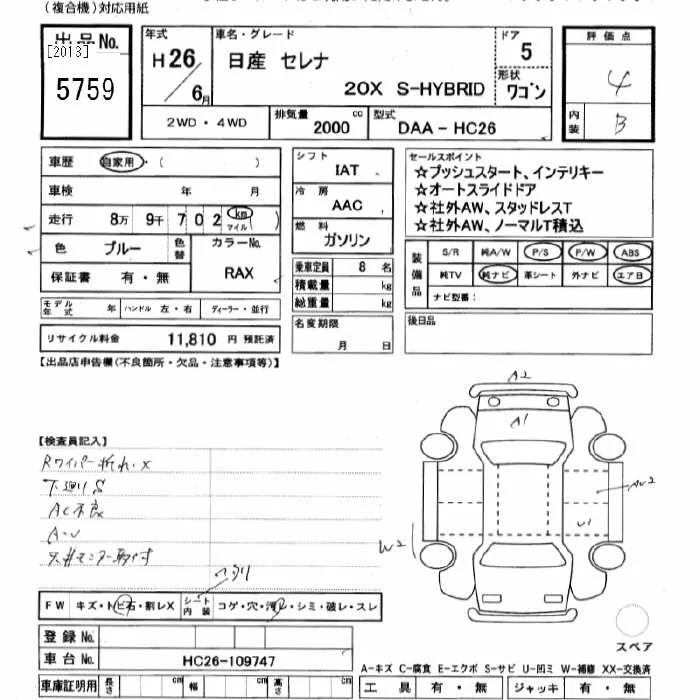 (複合機)対応用紙
出品No.
[2013]
5759
年式
H26/6月
車名・グレード
日産 セレナ
20X S-HYBRID
ドア
5
形状
ワゴン
評価点
4
内装
B
2WD・4WD
排気量
2000 cc
型式
DAA-HC26
車歴 自家用・( )
車検 年 月
走行 8万 9千 702 km マイル ( )
色 ブルー 色替 カラーNo.
保証書 有・無 RAX
モデル年式 年 ハンドル 左・右 ディーラー・並行
リサイクル料金 11,810 円 預託済
シフト
IAT
冷房
AAC
燃料
ガソリン
乗車定員 8 名
積載量 kg
総重量 kg
名変期限
月 日
セールスポイント
☆プッシュスタート、インテリキー
☆オートスライドドア
☆社外AW、スタッドレスT
☆社外AW、ノーマルT積込
装備品
S/R 純A/W P/S P/W ABS
純TV 純ナビ 革シート 外ナビ エアB
ナビ型番:
後日品
【出品店申告欄(不良箇所・欠品・注意事項等)】
【検査員記入】
Rワイパー折れ・X
下廻りS
AC不良
A・U
天井モニター取付
A2
A1
U1
W2
FW キズ・トビ石・割レX シート内装 コゲ・穴・汚レ・シミ・破レ・スレ
ヘタリ
登録No.
車台No. HC26-109747
スペア
A-キズ C-腐食 E-エクボ S-サビ U-凹ミ W-補修 XX-交換済
車庫証明用 長さ cm 幅 cm 高さ cm
工具 有・無 ジャッキ 有・無